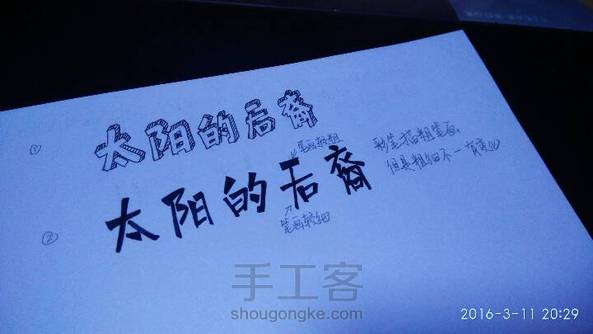 ① 太阳的后裔
笔画较粗
② 太阳的后裔
笔画较细
但是粗细不一
手工客
shougongke.com
2016-3-11 20:29